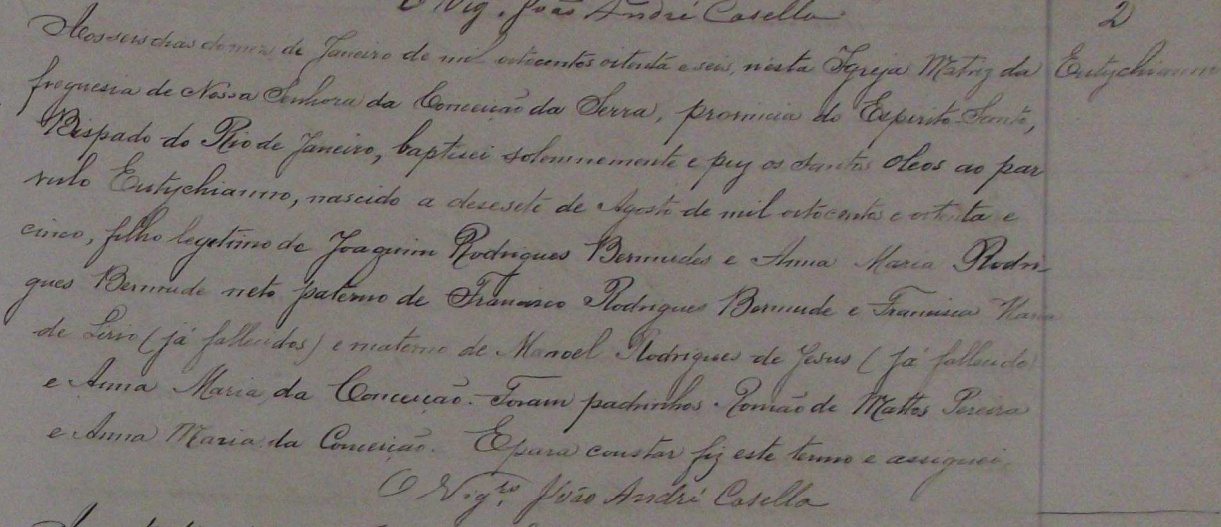 O Vig. João André Casella
2
Aos seis dias do mez de Janeiro de mil oitocentos oitenta e seis, nesta Igreja Matriz da
Eutychianno
freguesia de Nossa Senhora da Conceição da Serra, provincia do Espirito-Santo,
Bispado do Rio de Janeiro, baptisei solemnemente e puz os santos oleos ao par
vulo Eutychianno, nascido a desesete de Agosto de mil oitocentos e oitenta e
cinco, filho legetimo de Joaquim Rodrigues Bermudes e Anna Maria Rodri-
gues Bermude neto paterno de Francisco Rodrigues Bermude e Francisca Maria
de Lirio (já fallecidos) e materno de Manoel Rodrigues de Jesus (já fallecido
e Anna Maria da Conceição. Foram padrinhos. Romão de Mattos Pereira
e Anna Maria da Conceição. E para constar fiz este termo e assignei.
O Vigro João André Casella